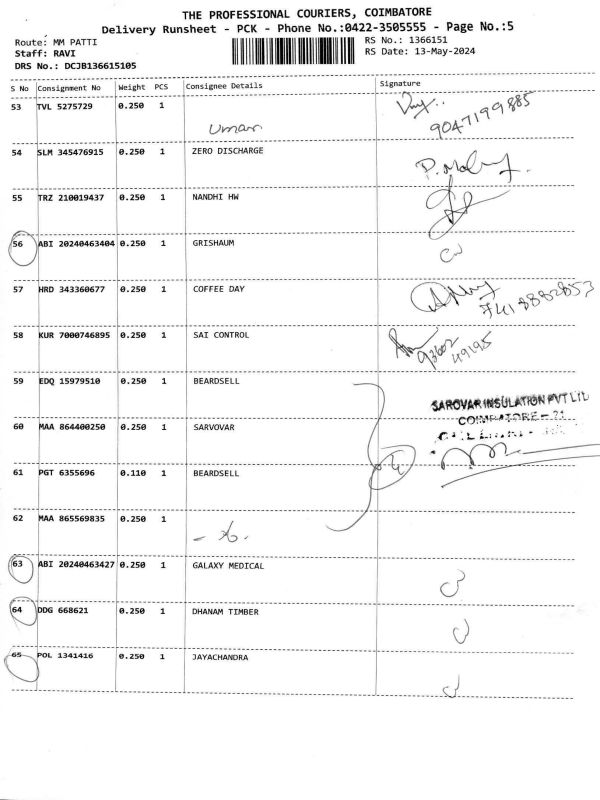 THE PROFESSIONAL COURIERS, COIMBATORE
Delivery Runsheet - PCK - Phone No.:0422-3505555 - Page No.:5
Route: MM PATTI RS No.: 1366151
Staff: RAVI RS Date: 13-May-2024
DRS No.: DCJB136615105
S No Consignment No Weight PCS Consignee Details Signature
53 TVL 5275729 0.250 1
Umar 9047199885
54 SLM 345476915 0.250 1 ZERO DISCHARGE
55 TRZ 210019437 0.250 1 NANDHI HW
56 ABI 20240463404 0.250 1 GRISHAUM
57 HRD 343360677 0.250 1 COFFEE DAY
7418882853
58 KUR 7000746895 0.250 1 SAI CONTROL
93602
49195
59 EDQ 15979510 0.250 1 BEARDSELL
SAROVAR INSULATION PVT LTD
COIMBATORE - 21
60 MAA 864400250 0.250 1 SARVOVAR
61 PGT 6355696 0.110 1 BEARDSELL
62 MAA 865569835 0.250 1
63 ABI 20240463427 0.250 1 GALAXY MEDICAL
64 DDG 668621 0.250 1 DHANAM TIMBER
65 POL 1341416 0.250 1 JAYACHANDRA